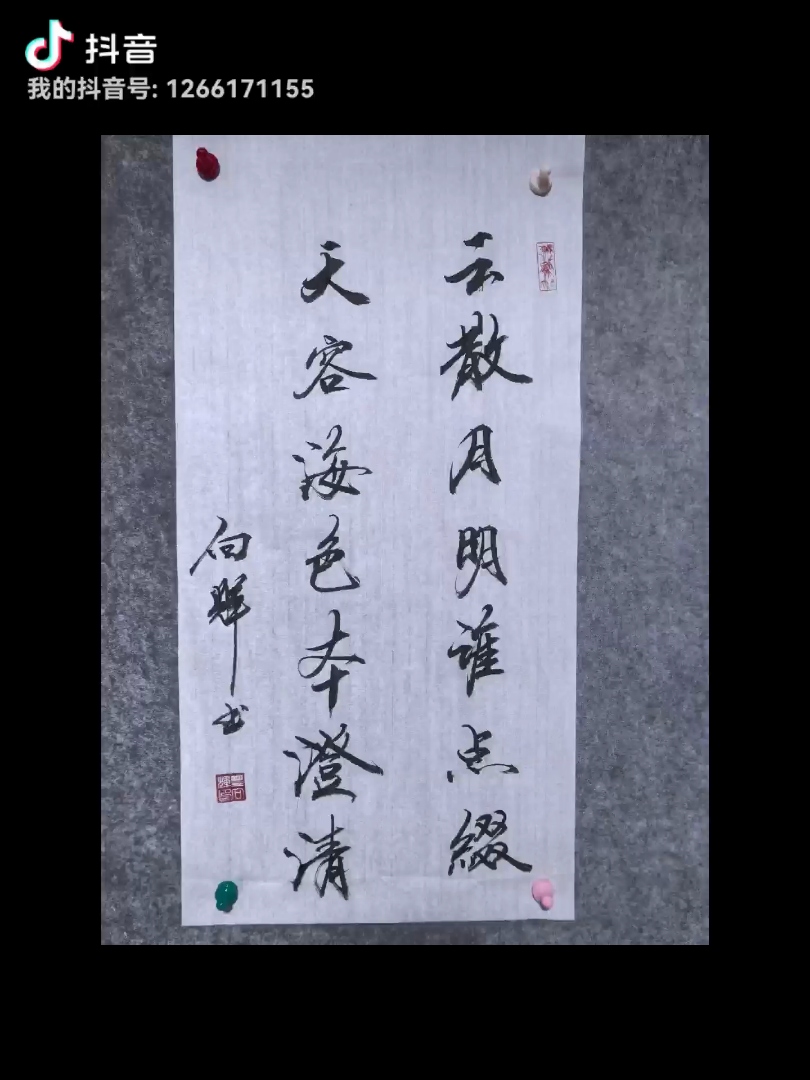 抖音
我的抖音号: 1266171155
云散月明谁点缀
天容海色本澄清
向辉书